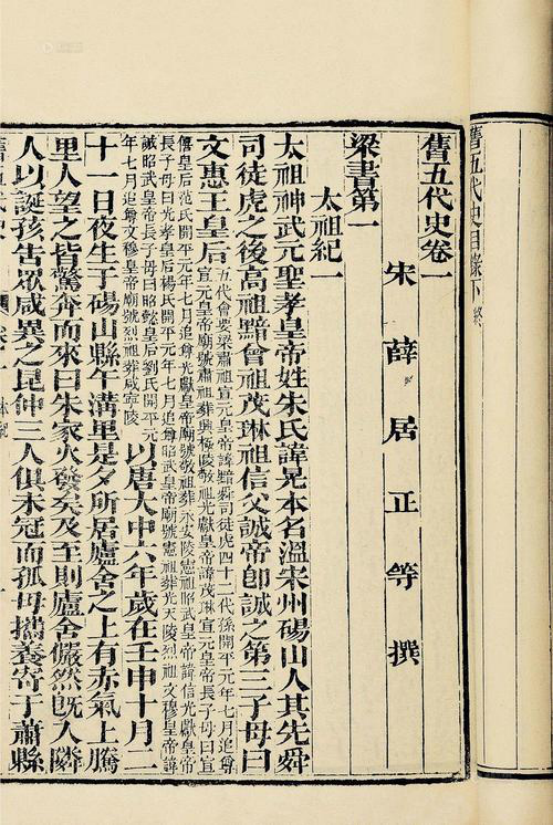 舊五代史目錄下 終
舊五代史卷一
宋薛居正等撰
梁書第一
太祖紀一
太祖神武元聖孝皇帝姓朱氏諱晃本名溫宋州碭山人其先舜
司徒虎之後高祖黯曾祖茂琳祖信父誠帝卽誠之第三子母曰
文惠王皇后
五代會要梁肅祖宣元皇帝諱黯舜司徒虎四十二代孫開平元年七月追尊
宣元皇帝廟號肅祖葬興極陵敬祖光獻皇帝諱茂琳宣元皇帝長子母曰宣
僖皇后范氏開平元年七月追尊光獻皇帝廟號敬祖葬永安陵憲祖昭武皇帝諱信光獻皇帝
長子母曰光孝皇后楊氏開平元年七月追尊昭武皇帝廟號憲祖葬光天陵烈祖文穆皇帝諱
誠昭武皇帝長子母曰昭懿皇后劉氏開平元
年七月追尊文穆皇帝廟號烈祖葬咸寧陵
以唐大中六年歲在壬申十月二
十一日夜生于碭山縣午溝里是夕所居廬舍之上有赤氣上騰
里人望之皆驚奔而來曰朱家火發矣及至則廬舍儼然旣入隣
人以誕孩告眾咸異之昆仲三人俱未冠而孤母攜養寄于蕭縣